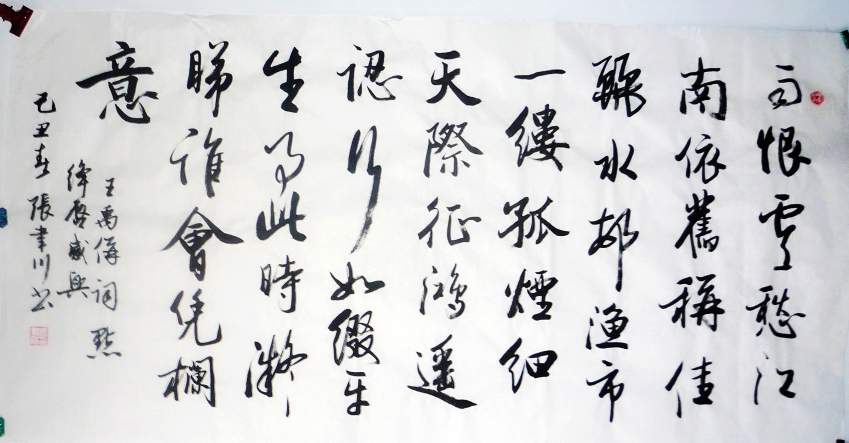 雨恨雲愁江
南依舊稱佳
麗水邨渔市
一縷孤煙細
天際征鴻遥
認行如綴平
生事此時凝
睇誰會凭欄
意
王禹偁詞點
絳唇感興
己丑春張聿川書